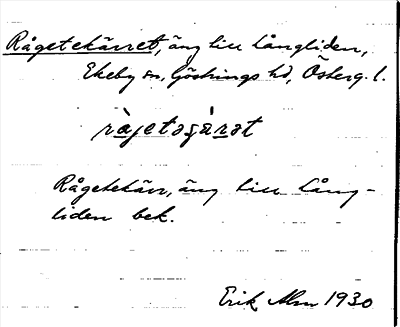 Rågetekärret, äng till Långliden,
Ekeby sn, Göstrings hd, Österg. l.
ràjetəçä́rət
Rågetekärr, äng till Lång-
liden bek.
Erik Alm 1930